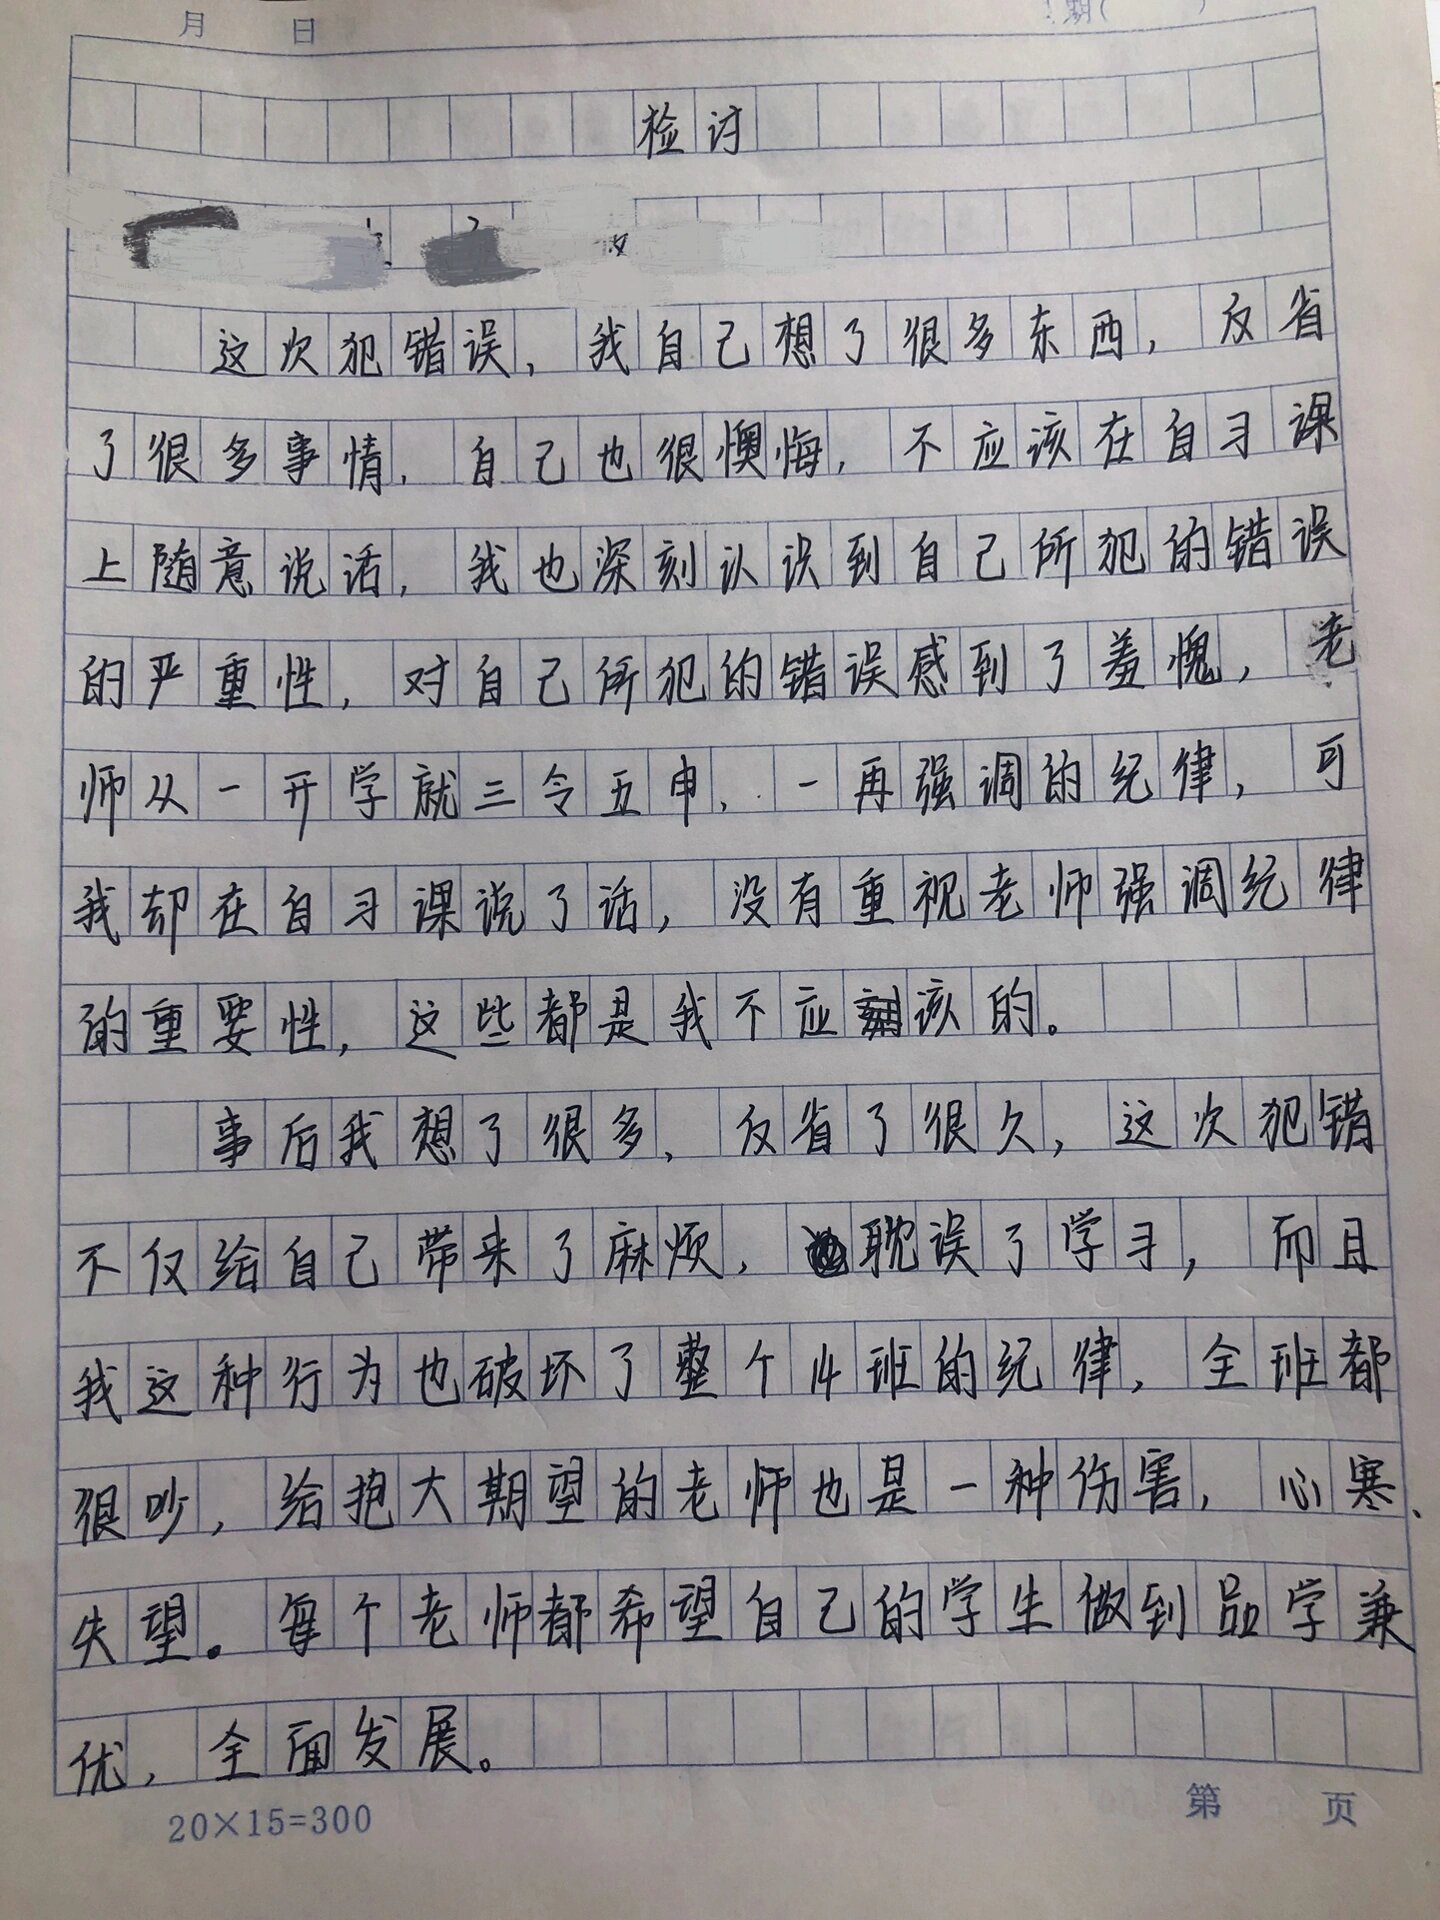 月 日
检讨
这次犯错误，我自己想了很多东西，反省
了很多事情，自己也很懊悔，不应该在自习课
上随意说话，我也深刻认识到自己所犯的错误
的严重性，对自己所犯的错误感到了羞愧，老
师从一开学就三令五申，一再强调的纪律，可
我却在自习课说了话，没有重视老师强调纪律
的重要性，这些都是我不应该的。
事后我想了很多，反省了很久，这次犯错
不仅给自己带来了麻烦，耽误了学习，而且
我这种行为也破坏了整个14班的纪律，全班都
很吵，给抱大期望的老师也是一种伤害，心寒、
失望。每个老师都希望自己的学生做到品学兼
优，全面发展。
20×15=300 第 页